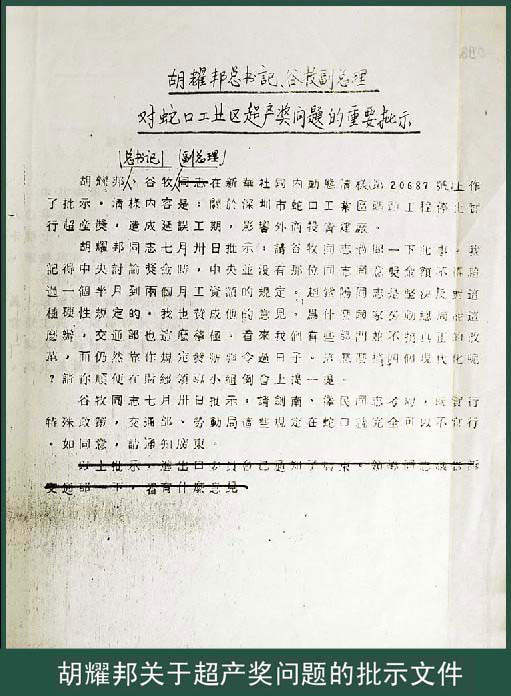 胡耀邦总书記、谷牧副总理
对蛇口工业区超产奖问题的重要批示
总书记 副总理
胡耀邦、谷牧同志在新華社国内動態清様第20687號上作
了批示，清様内容是：關於深圳市蛇口工業區碼頭工程停止實
行超産獎，造成延誤工期，影響外商投資建廠。
胡耀邦同志七月卅日批示：請谷牧同志過問一下此事。我
記得中央討論獎金時，中央並没有那位同志同意獎金額不得超
過一個半月到兩個月工資額的規定。趙紫陽同志是堅決反對這
種硬性規定的。我也贊成他的意見。爲什麽國家勞動總局這
麽辦，交通部也這麽，看來我們有些部門並不搞真正的改
革，而仍然靠作規定發號施令過日子。這怎麽搞四個現代化呢
？請你順便在財經領導小組例會上提一提。
谷牧同志七月卅日批示：請劍南、澤民同志考慮，既實行
特殊政策，交通部、勞動局這些規定在蛇口就完全可以不實行
。如同意，請通知廣東。
看有什麽意見
胡耀邦关于超产奖问题的批示文件